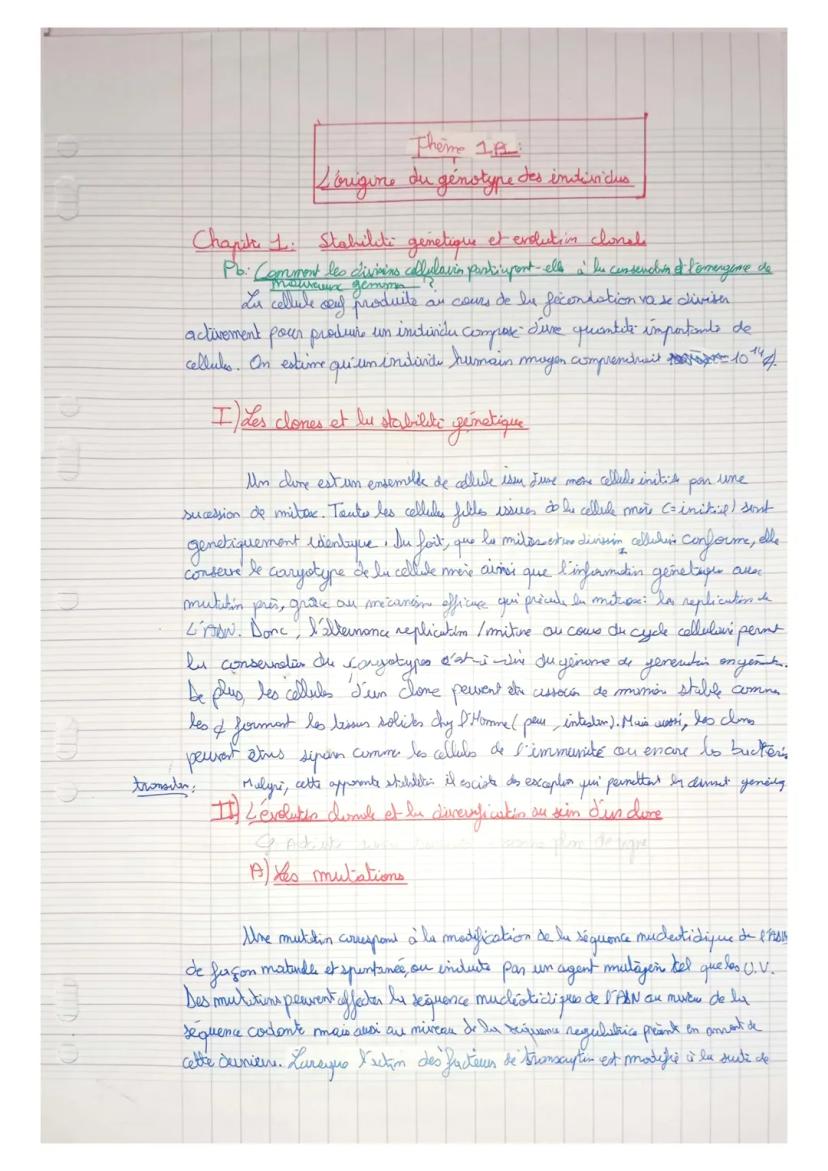 Thème 1A :
L'origine du génotype des individus
Chapitre 1 : Stabilité génétique et evolution clonale
Pb : Comment les divisions cellulaires participent-elle à la conservation et l'émergence de
nouveaux gemmes ?
La cellule oeuf produite au cours de la fécondation va se diviser
activement pour produire un individu composé d'une quantité importante de
cellules. On estime qu'un individu humain moyen comprendrait 10^14
I) Les clones et la stabilité génétique
Un clone est un ensemble de cellule issu d'une mere cellule initiale par une
sucession de mitose. Toutes les cellules filles issues de la cellule mère (= initial) sont
genetiquement identique. Du fait, que la mitose est une division cellulaire conforme, elle
conserve le caryotype de la cellule mère ainsi que l'information génétique aux
mutation près, grâce au mécanisme efficace qui précède la mitose : la replication de
L'ADN. Donc, l'alternance replication / mitose au cours du cycle cellulaire permet
la conservation du caryotypes c'est-à-dire du génome de generation en géné.
De plus, les cellules d'un clone peuvent être associés de manière stable comme
les ¢ formant les tissus solides chez l'Homme (peau, intestin). Mais aussi, les clones
peuvent êtres séparer comme les cellules de l'immunité ou encore les bactéries
transition : Malgré, cette apparente stabilité il existe des exception qui permettent la diversité
II) L'évolution clonale et la diversification au sein d'un clone
plus de ligne
A) Les mutations
Une mutation correspond à la modification de la séquence nucléotidique de l'ADN
de façon naturelle et spontanée, ou induite par un agent mutagène tel que les U.V.
Des mutations peuvent affecter la séquence nucléotidiques de l'ADN au niveau de la
séquence codante mais aussi au niveau de la séquence regulatrice présente en amont de
cette dernière. Lorsque l'action des facteurs de transcription est modifié à la suite de